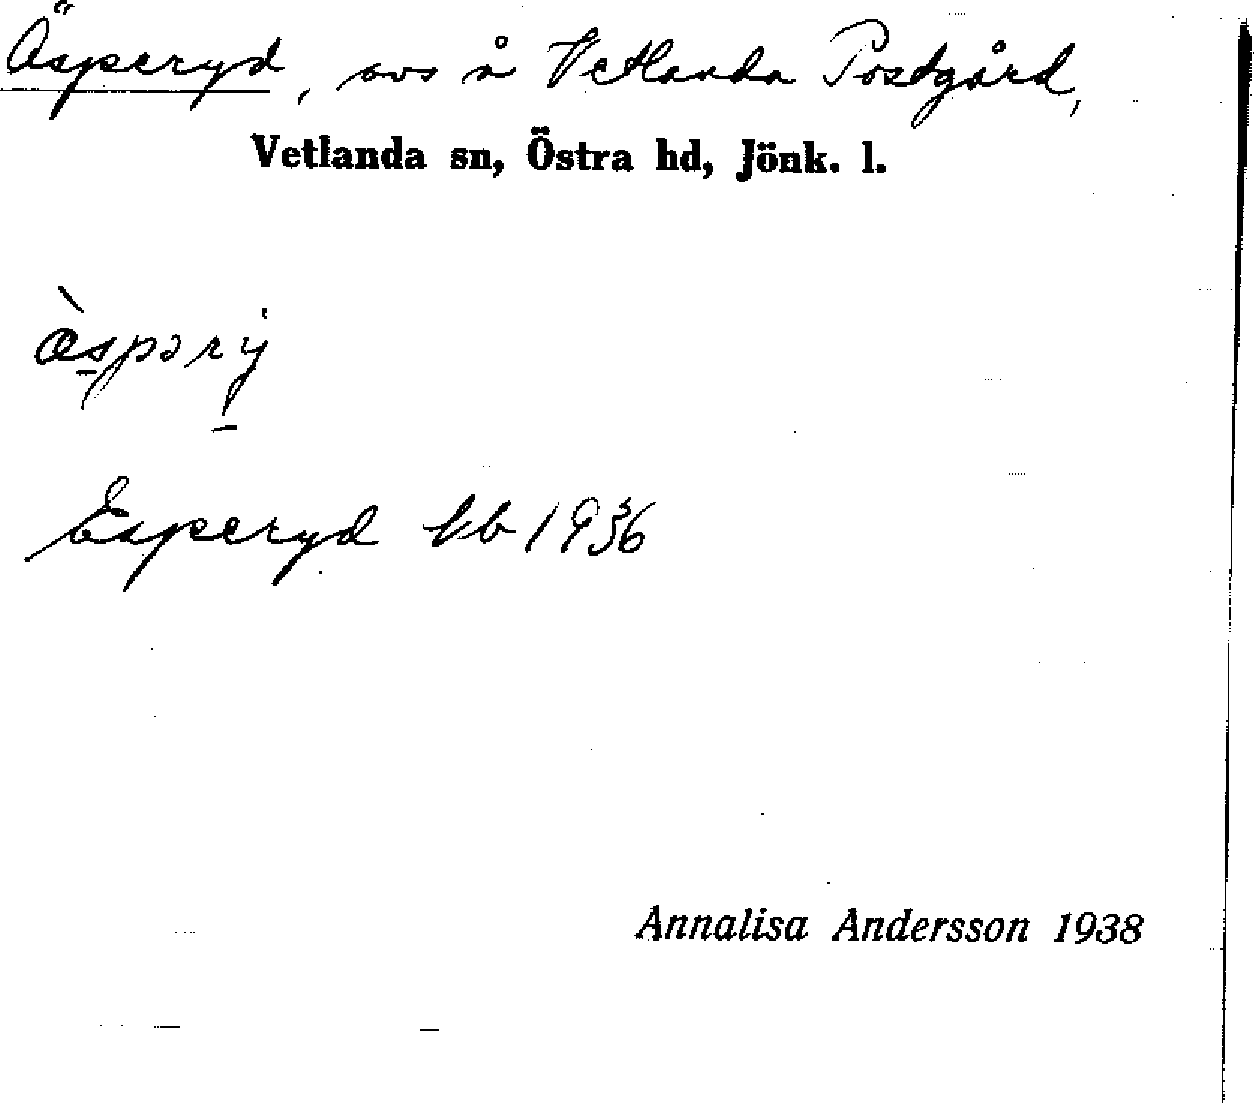 Äsperyd, avs å Vetlanda Postgård,
Vetlanda sn, Östra hd, Jönk. l.
æ̀spəry
Esperyd kb 1936
Annalisa Andersson 1938